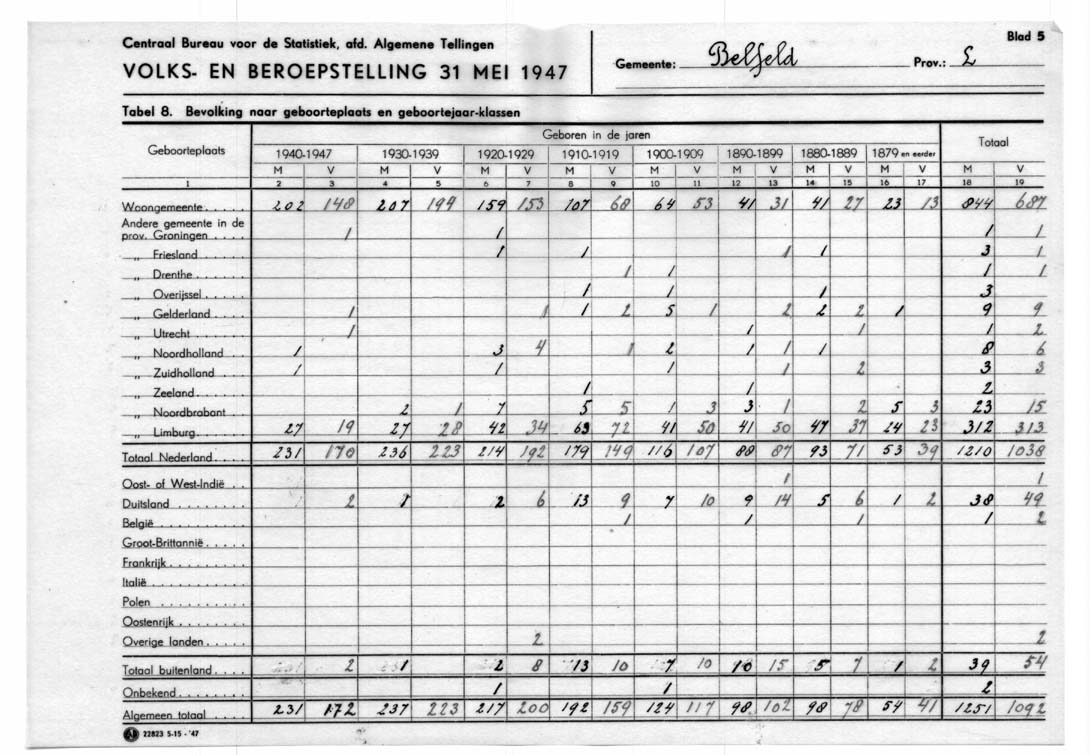 Centraal Bureau voor de Statistiek, afd. Algemene Tellingen
VOLKS- EN BEROEPSTELLING 31 MEI 1947
Gemeente: Belfeld Prov.: L
Blad 5
Tabel 8. Bevolking naar geboorteplaats en geboortejaar-klassen
Geboorteplaats Geboren in de jaren Totaal
1940-1947 1930-1939 1920-1929 1910-1919 1900-1909 1890-1899 1880-1889 1879 en eerder
M V M V M V M V M V M V M V M V M V
1 2 3 4 5 6 7 8 9 10 11 12 13 14 15 16 17 18 19
Woongemeente..... 202 148 207 194 159 153 107 68 64 53 41 31 41 27 23 13 844 687
Andere gemeente in de
prov. Groningen .... 1 1 1 1
„ Friesland ...... 1 1 1 1 3 1
„ Drenthe ....... 1 1 1 1
„ Overijssel ...... 1 1 1 3
„ Gelderland ..... 1 1 1 2 5 1 2 2 2 1 9 9
„ Utrecht ....... 1 1 1 1 2
„ Noordholland ... 1 3 4 1 2 1 1 1 8 6
„ Zuidholland .... 1 1 1 1 2 3 3
„ Zeeland ....... 1 1 2
„ Noordbrabant ... 2 1 7 5 5 1 3 3 1 2 5 3 23 15
„ Limburg....... 27 19 27 28 42 34 63 72 41 50 41 50 47 37 24 23 312 313
Totaal Nederland..... 231 170 236 223 214 192 179 149 116 107 88 87 93 71 53 39 1210 1038
Oost- of West-Indië .. 1 1
Duitsland .......... 2 1 2 6 13 9 7 10 9 14 5 6 1 2 38 49
België ............ 1 1 1 1 2
Groot-Brittannië .....
Frankrijk ..........
Italië .............
Polen ............
Oostenrijk .........
Overige landen ..... 2 2
Totaal buitenland .... 2 1 2 8 13 10 7 10 10 15 5 7 1 2 39 54
Onbekend ......... 1 1 2
Algemeen totaal .... 231 172 237 223 217 200 192 159 124 117 98 102 98 78 54 41 1251 1092
22823 5-15-'47